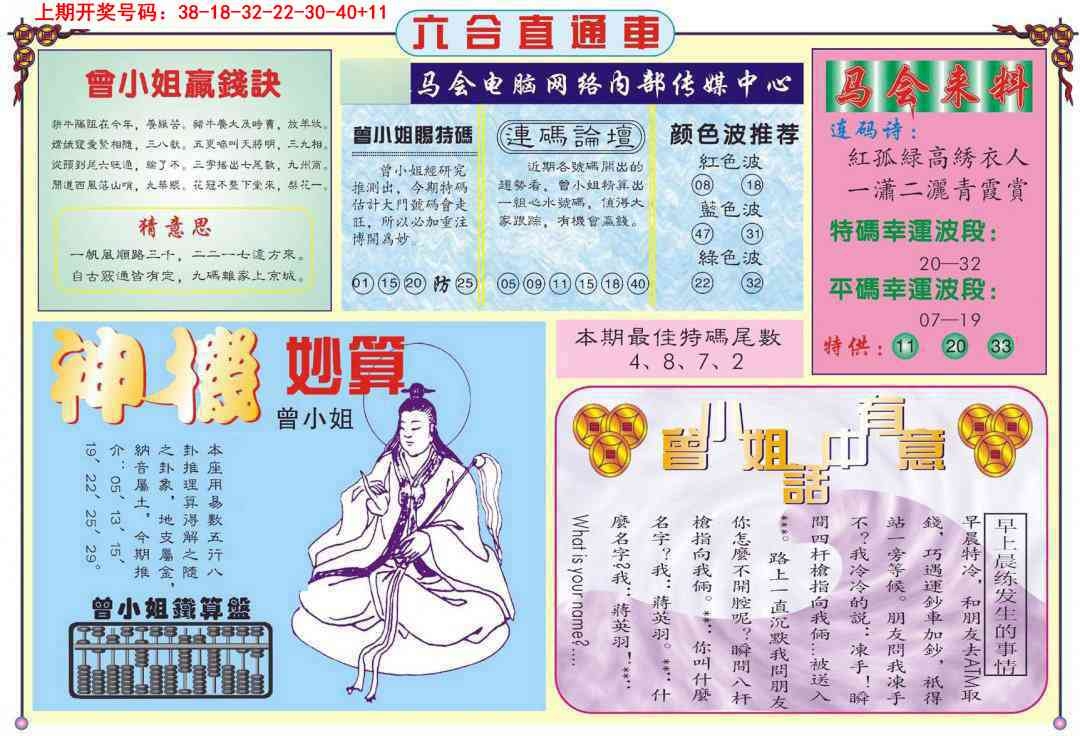 上期开奖号码：38-18-32-22-30-40+11
六合直通車
曾小姐贏錢訣
猜意思
一帆風順路三千，二二一七遠方來。
自古窮通皆有定，九碼離家上京城。
马会电脑网络内部传媒中心
曾小姐賜特碼
曾小姐經研究
推測出，今期特碼
估計大門號碼會走
旺，所以必加重注
博開爲妙
01 15 20 防 25
連碼論壇
近期各號碼開出的
趨勢看，曾小姐精算出
一組心水號碼，值得大
家跟踪，有機會贏錢。
05 09 11 15 18 40
颜色波推荐
紅色波
08 18
藍色波
47 31
綠色波
22 32
马会来料
连码诗：
紅孤緑高綉衣人
一瀟二灑青霞賞
特碼幸運波段：
20—32
平碼幸運波段：
07—19
特供：11 20 33
本期最佳特碼尾數
4、8、7、2
神機妙算
曾小姐
本座用易數五行八
卦推理算得解之随
之卦象，地支屬金，
納音屬土，今期推
介：05、13、15、
19、22、25、29。
曾小姐鐵算盤
曾小姐話中有意
早上晨练发生的事情
早晨特冷，和朋友去ATM取
錢，巧遇運鈔車加鈔，祇得
站一旁等候。朋友問我凍手
不？我冷冷的說：凍手！瞬
間四杆槍指向我倆…被送入
***。路上一直沉默我問朋友
你怎麽不開腔呢？瞬間八杆
槍指向我倆。**：你叫什麽
名字？我：蔣英羽。**：什
麽名字？我：蔣英羽！**：
What is your name?....